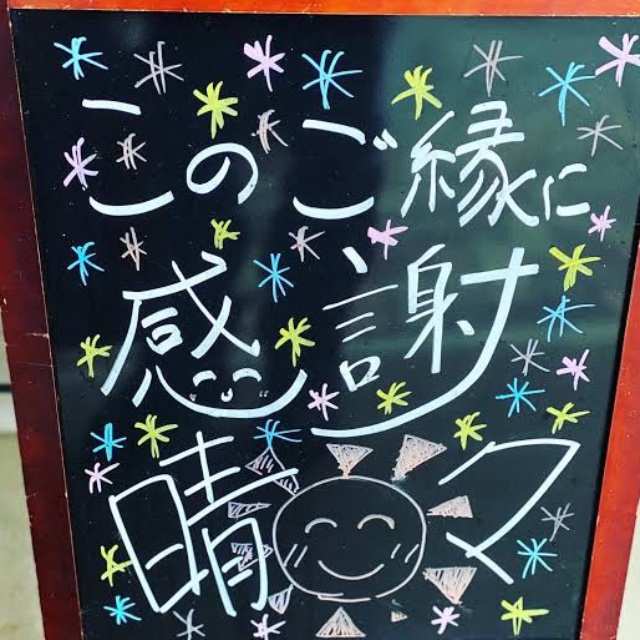 このご縁に
感謝
晴々